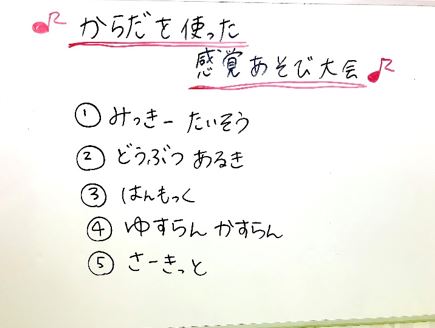 からだを使った
感覚あそび大会
① みっきー たいそう
② どうぶつ あるき
③ はんもっく
④ ゆすらん かすらん
⑤ さーきっと